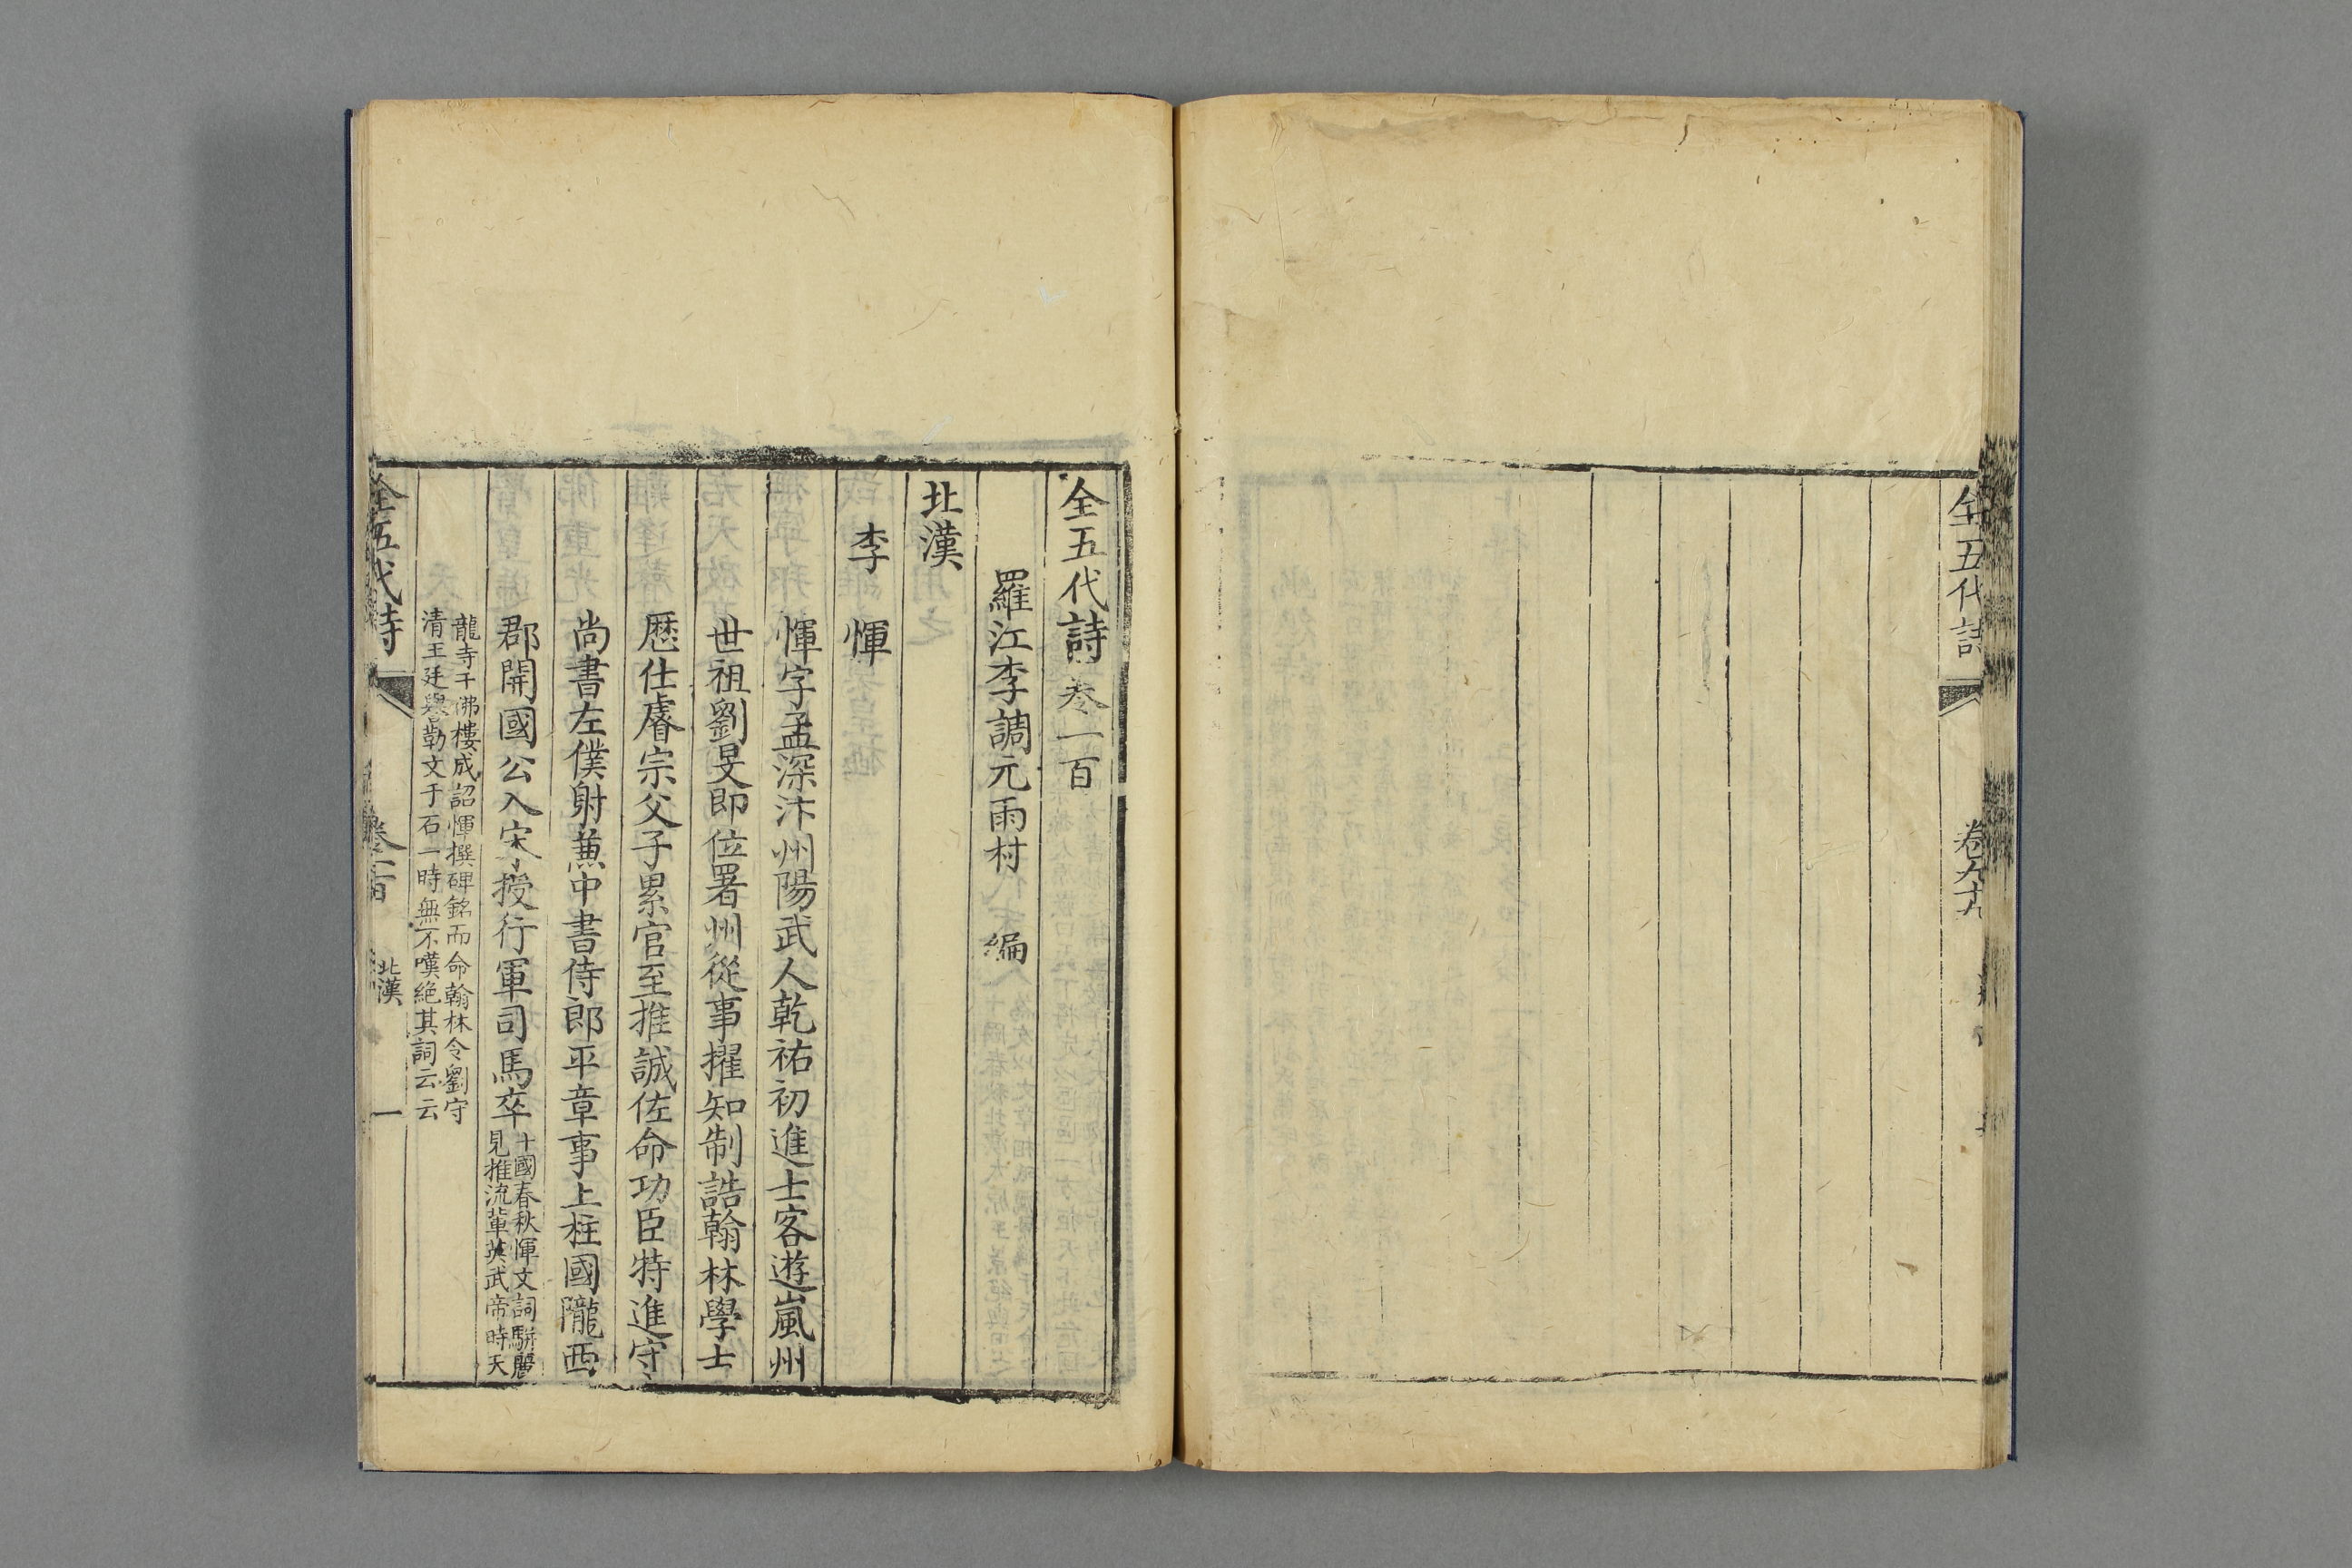 全五代詩
卷九十九
全五代詩卷一百
羅江李調元雨村 編
北漢
李 惲
惲字孟深汴州陽武人乾祐初進士客遊嵐州
世祖劉旻即位署州從事擢知制誥翰林學士
歷仕睿宗父子累官至推誠佐命功臣特進守
尚書左僕射兼中書侍郎平章事上柱國隴西
郡開國公入宋授行軍司馬卒
十國春秋惲文詞駢麗
見推流輩英武帝時天
龍寺千佛樓成詔惲撰碑銘而命翰林令劉守
清王廷譽勒文于石一時無不嘆絕其詞云云
全五代詩
卷一百
北漢
一